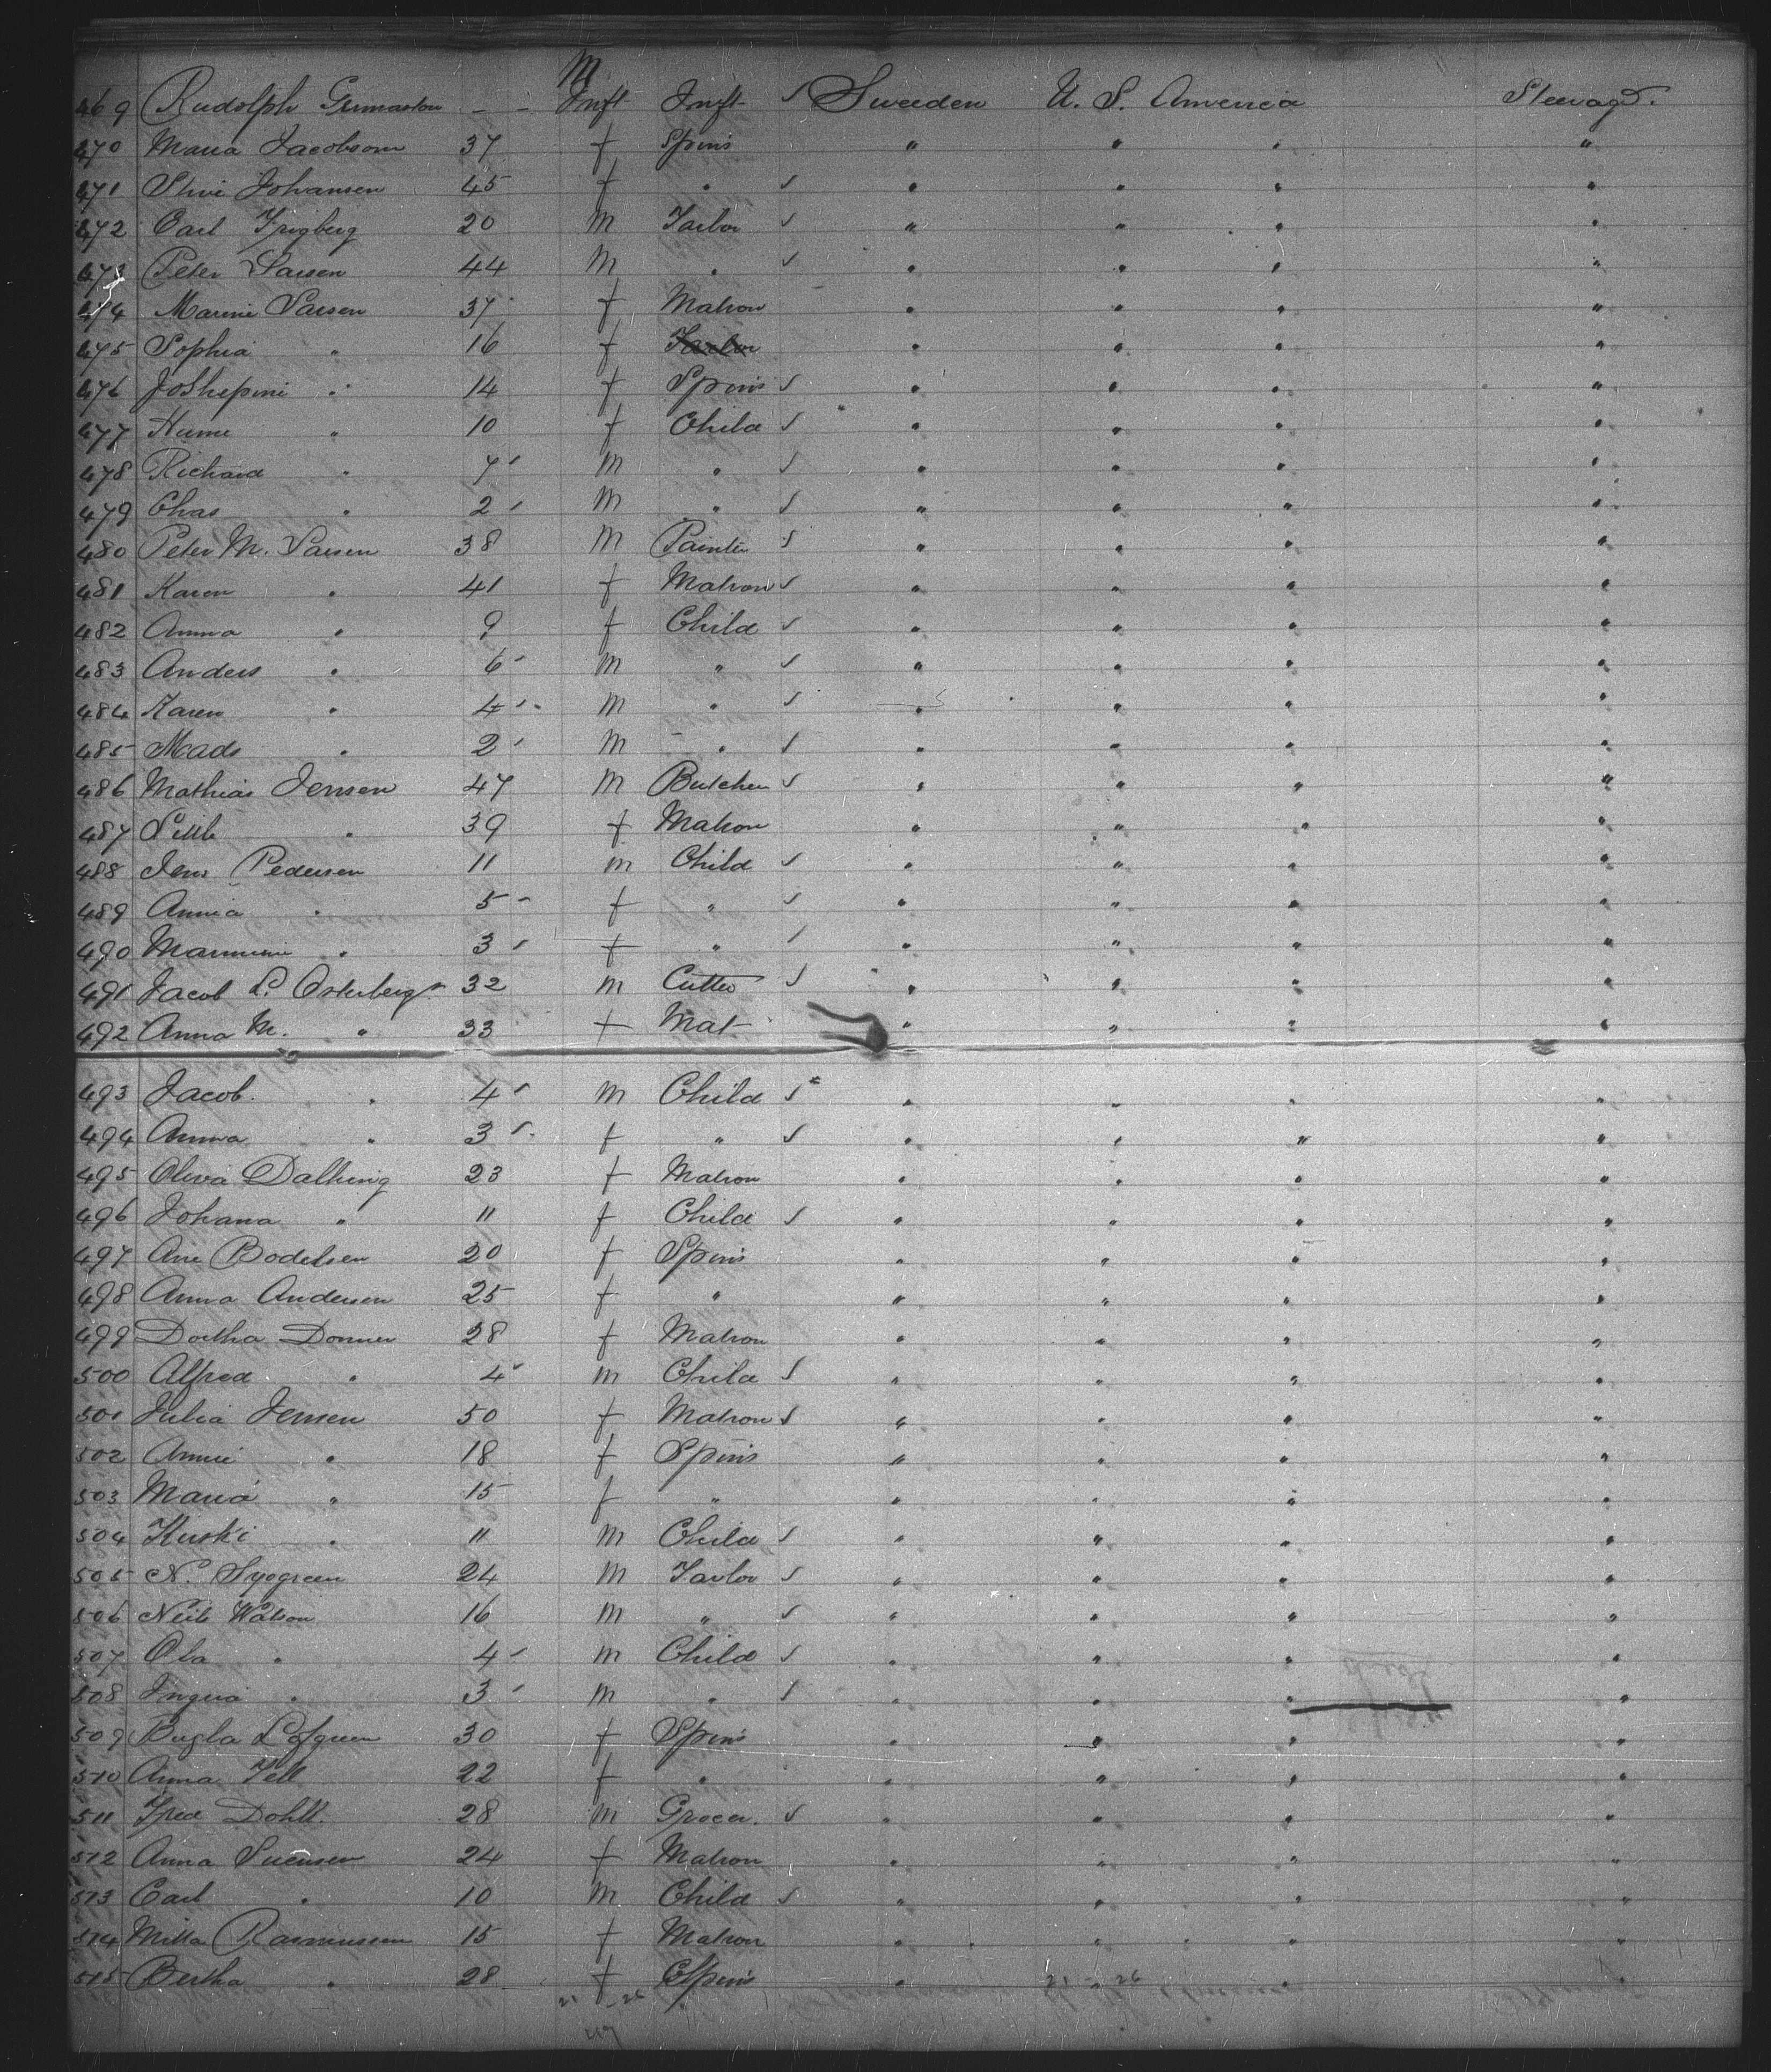 M
469 Rudolph Gumaston - - Inft Inft ✓ Sweeden U. S. America Steerage.
470 Maria Jacobson 37 f Spins " " " "
471 Johansen 45 f " ✓ " " " "
472 Carl Frigberg 20 M Tailor ✓ " " " "
473 Peter Larsen 44 M " ✓ " " " "
474 Marine Larsen 37 f Matron " " " "
475 Sophia " 16 f Tailor " " " "
476 Joshepine " 14 f Spins ✓ " " " "
477 Hume " 10 f Child ✓ " " " "
478 Richard " 7 M " ✓ " " " "
479 Chas " 2 M " ✓ " " " "
480 Peter M. Larsen 38 M Painter ✓ " " " "
481 Karen " 41 f Matron ✓ " " " "
482 Anna " 9 f Child ✓ " " " "
483 Anders " 6 M " ✓ " " " "
484 Karen " 4 M " ✓ " " " "
485 Mads " 2 M " ✓ " " " "
486 Mathias Jensen 47 M Butcher ✓ " " " "
487 " 39 f Matron " " " "
488 Jens Pedersen 11 m Child ✓ " " " "
489 Annia " 5 f " ✓ " " " "
490 " 3 f " ✓ " " " "
491 Jacob L. Osterberg 32 m Cutter ✓ " " " "
492 Anna M. " 33 f Mat " " " "
493 Jacob " 4 m Child ✓ " " " "
494 Anna " 3 f " ✓ " " " "
495 Oliva Dalhing 23 f Matron " " " "
496 Johana " 11 f Child ✓ " " " "
497 Ane Bodelsen 20 f Spins " " " "
498 Anna Andersen 25 f " " " " "
499 Dortha Donner 28 f Matron " " " "
500 Alfred " 4 m Child ✓ " " " "
501 Julia Jensen 50 f Matron ✓ " " " "
502 Annie " 18 f Spins " " " "
503 Maria " 15 f " " " " "
504 Kuski " 11 M Child ✓ " " " "
505 N. Syogreen 24 M Tailor ✓ " " " "
506 Neils Watson 16 M " ✓ " " " "
507 Ola " 4 m Child ✓ " " " "
508 " 3 M " ✓ " " " "
509 Bugla Lofgreen 30 f Spins " " " "
510 Anna Tell 22 f " " " " "
511 Fred Dohll. 28 m Grocer. ✓ " " " "
512 Anna Svensen 24 f Matron " " " "
513 Carl " 10 M Child ✓ " " " "
514 Milla Rasmussen 15 f Matron " " " "
515 Bertha " 28 f Spins " " " "
21 - 26 21 - 26